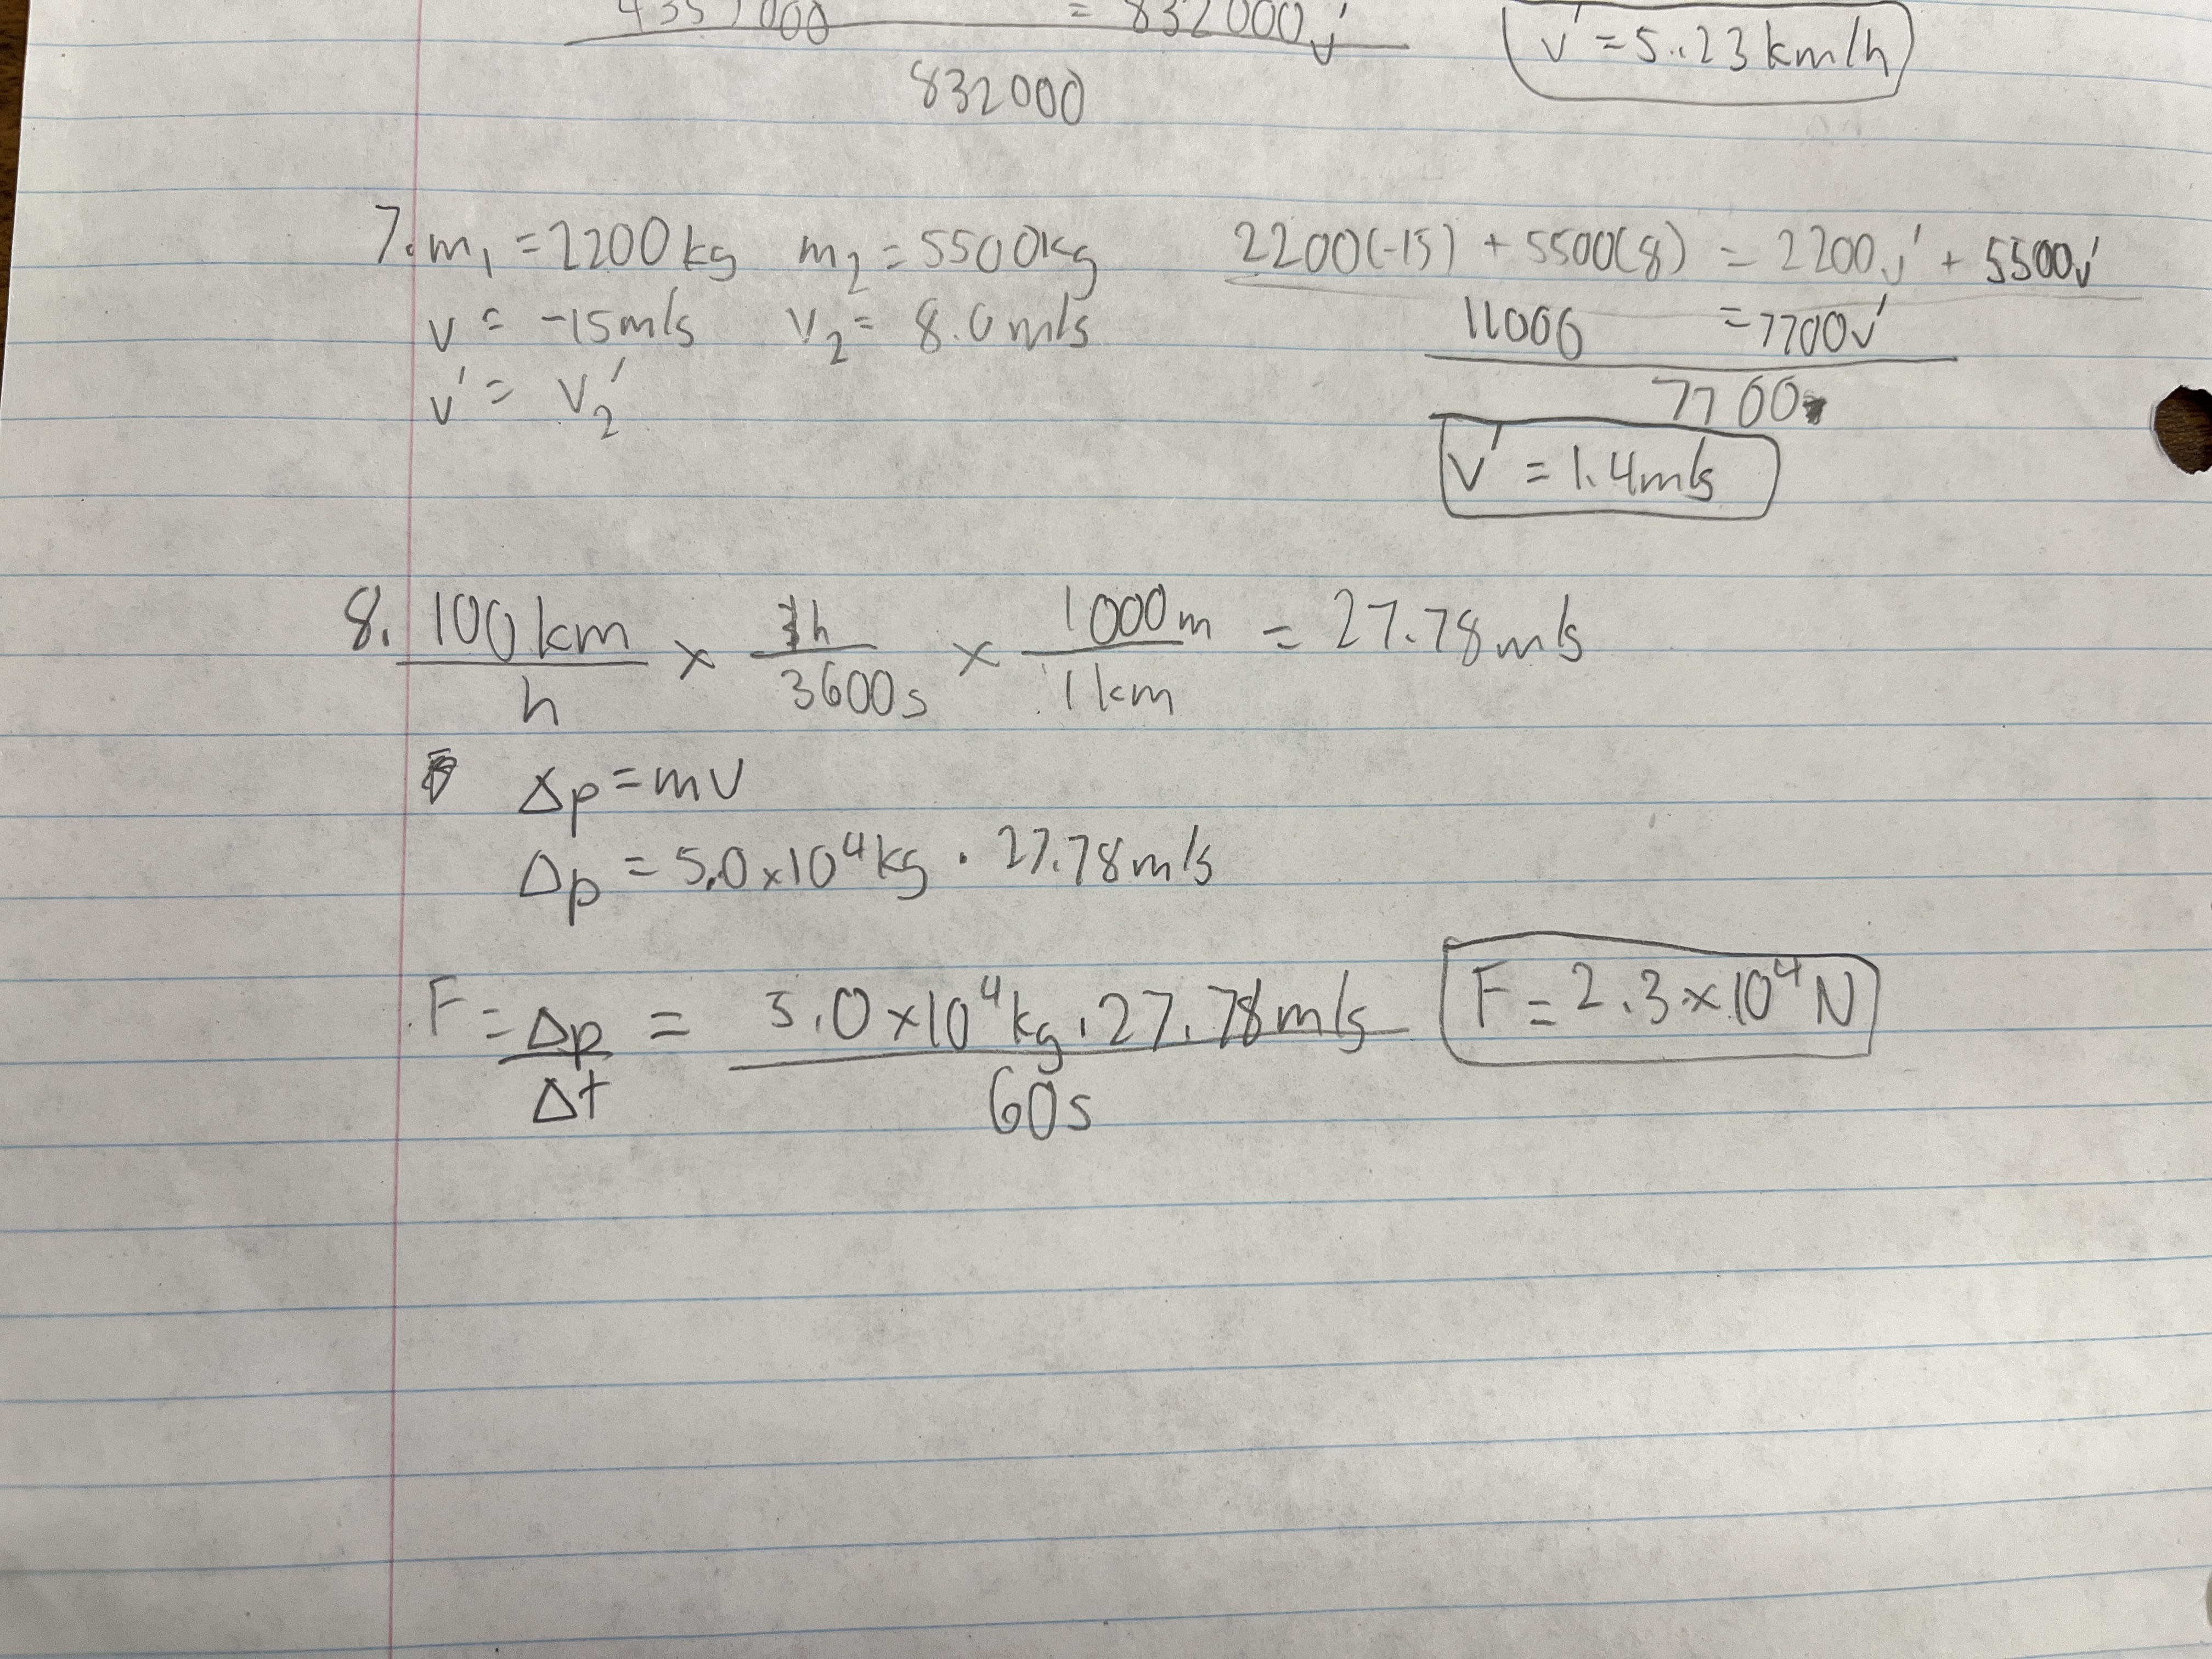 4351000 = 832000v'
832000
v' = 5.23 km/h
7. m₁ = 2200 kg m₂ = 5500kg
v = -15m/s v₂ = 8.0m/s
v' = v₂'
2200(-15) + 5500(8) = 2200v' + 5500v'
11000 = 7700v'
7700
v' = 1.4m/s
8. 100km/h × 1h/3600s × 1000m/1km = 27.78m/s
Δp = mv
Δp = 5.0×10⁴kg · 27.78m/s
F = Δp/Δt = 5.0×10⁴kg · 27.78m/s / 60s
F = 2.3×10⁴N